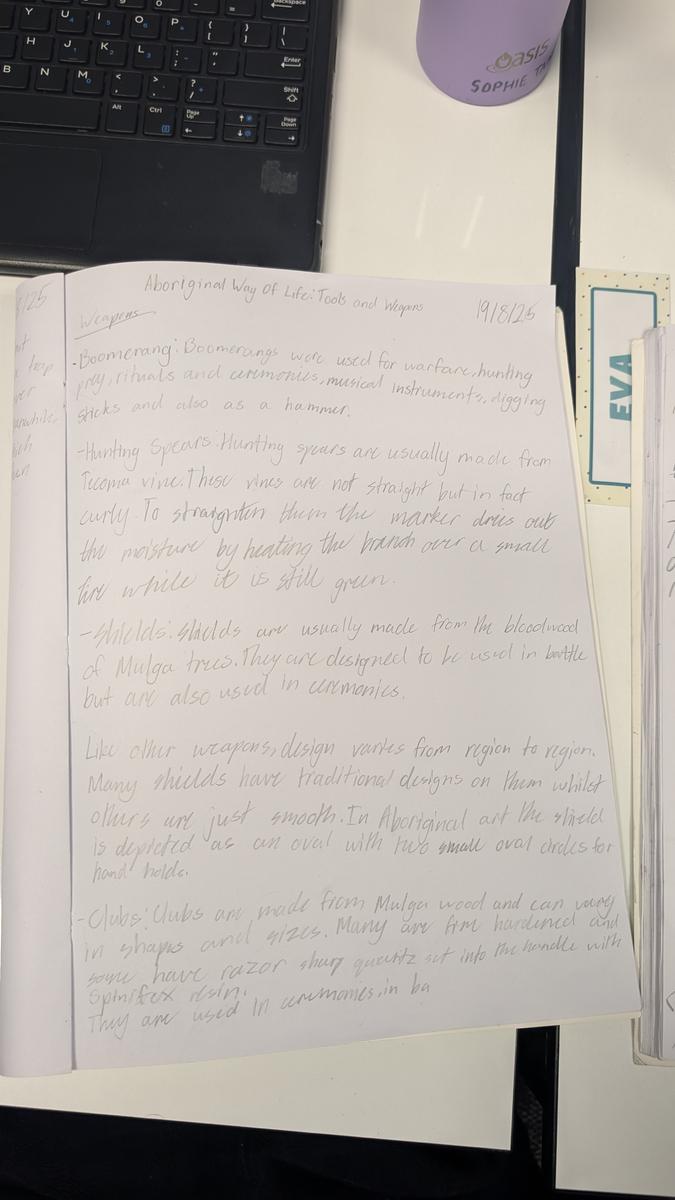 Y U I O P { } |
H J K L : " Enter
B N M < > ? / Shift
Alt Ctrl Page Up Page Down
Backspace
Oasis
SOPHIE
EVA
Aboriginal Way Of Life: Tools and Weapons
19/8/25
Weapons
-Boomerang: Boomerangs were used for warfare, hunting
prey, rituals and ceremonies, musical instruments, digging
sticks and also as a hammer.
-Hunting Spears: Hunting spears are usually made from
Tecoma vine. These vines are not straight but in fact
curly. To straighten them the marker dries out
the moisture by heating the branch over a small
fire while it is still green.
-Shields: Shields are usually made from the bloodwood
of Mulga trees. They are designed to be used in battle
but are also used in ceremonies.
Like other weapons, design varies from region to region.
Many shields have traditional designs on them whilst
others are just smooth. In Aboriginal art the shield
is depicted as an oval with two small oval circles for
hand holds.
-Clubs: Clubs are made from Mulga wood and can vary
in shapes and sizes. Many are fire hardened and
some have razor sharp quartz set into the handle with
Spinifex resin.
They are used in ceremonies, in ba